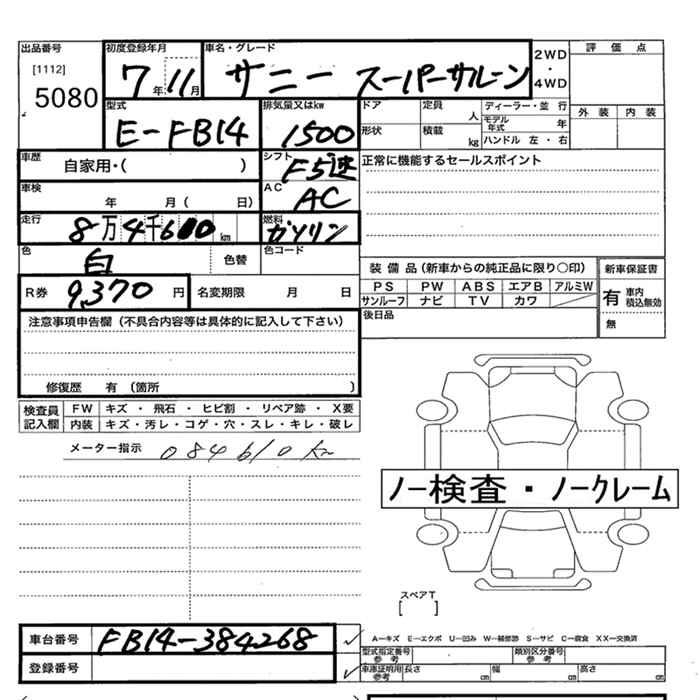 出品番号
[1112]
5080
初度登録年月
7年11月
車名・グレード
サニー スーパーサルーン
2WD
・
4WD
評価点
外装 内装
型式
E-FB14
排気量又はkw
1500
ドア
定員
人
ディーラー・並行
形状
積載
kg
モデル年式
年
ハンドル 左・右
車歴
自家用・( )
シフト
F5速
正常に機能するセールスポイント
車検
年 月 ( 日)
AC
AC
走行
8万4千6 0km
燃料
ガソリン
色
白
色替
色コード
R券
9,370円
名変期限 月 日
装備品(新車からの純正品に限り○印)
PS PW ABS エアB アルミW
サンルーフ ナビ TV カワ
新車保証書
有 車内積込無効
無
後日品
注意事項申告欄(不具合内容等は具体的に記入して下さい)
修復歴 有(箇所 )
検査員記入欄
FW キズ・飛石・ヒビ割・リペア跡・X要
内装 キズ・汚レ・コゲ・穴・スレ・キレ・破レ
メーター指示 084610km
ノー検査・ノークレーム
スペアT
[ ]
車台番号
FB14-384268
登録番号
A-キズ E-エクボ U-凹み W-補修跡 S-サビ C-腐食 XX-交換済
型式指定番号
参考
類別区分番号
参考
車庫証明用
参考
長さ cm 幅 cm 高さ cm